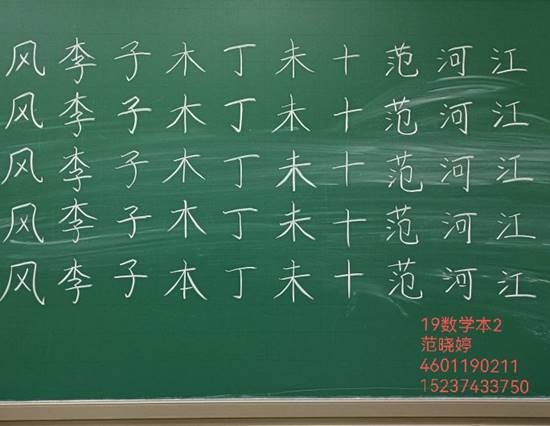 风李子木丁未十范河江
风李子木丁未十范河江
风李子木丁未十范河江
风李子木丁未十范河江
风李子本丁未十范河江
19数学本2
范晓婷
4601190211
15237433750